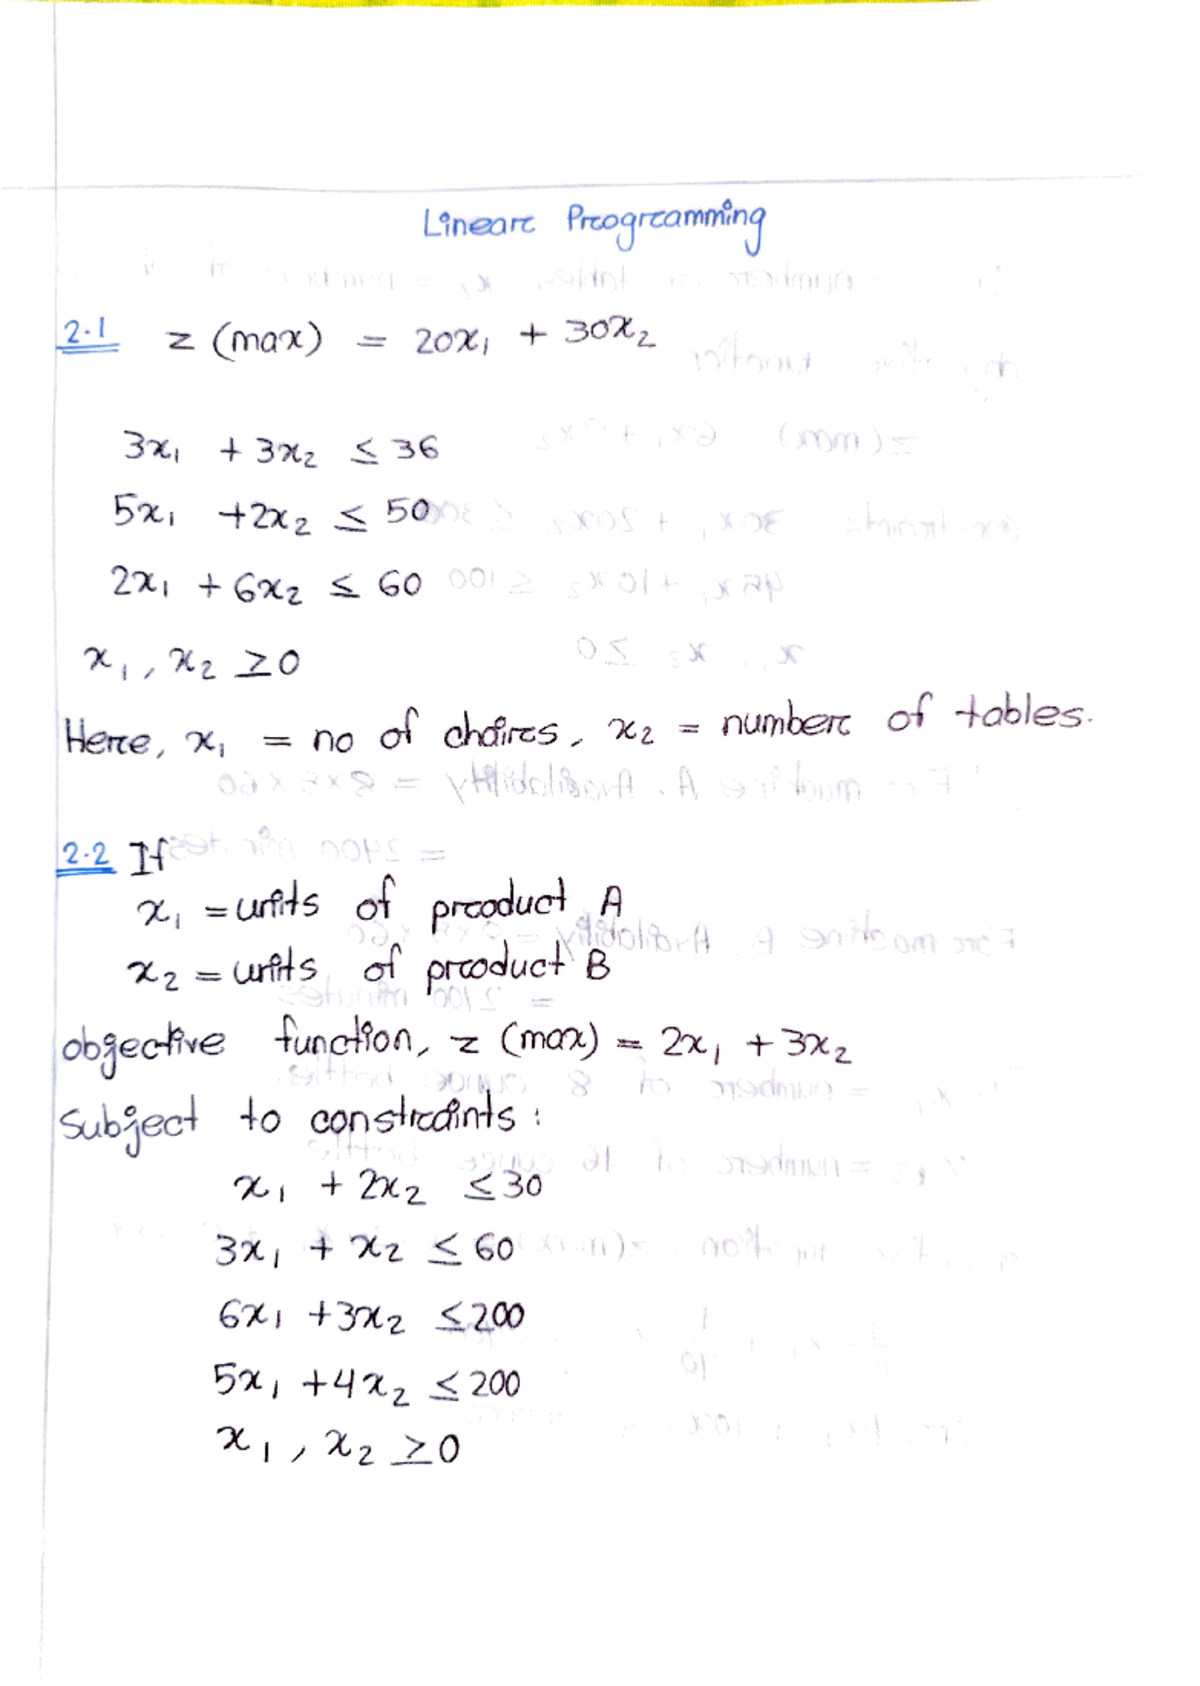 Linear Programming
2.1 z (max) = 20x₁ + 30x₂
3x₁ + 3x₂ ≤ 36
5x₁ + 2x₂ ≤ 50
2x₁ + 6x₂ ≤ 60
x₁, x₂ ≥ 0
Here, x₁ = no of chairs, x₂ = number of tables.
2.2 If
x₁ = units of product A
x₂ = units of product B
objective function, z (max) = 2x₁ + 3x₂
Subject to constraints:
x₁ + 2x₂ ≤ 30
3x₁ + x₂ ≤ 60
6x₁ + 3x₂ ≤ 200
5x₁ + 4x₂ ≤ 200
x₁, x₂ ≥ 0